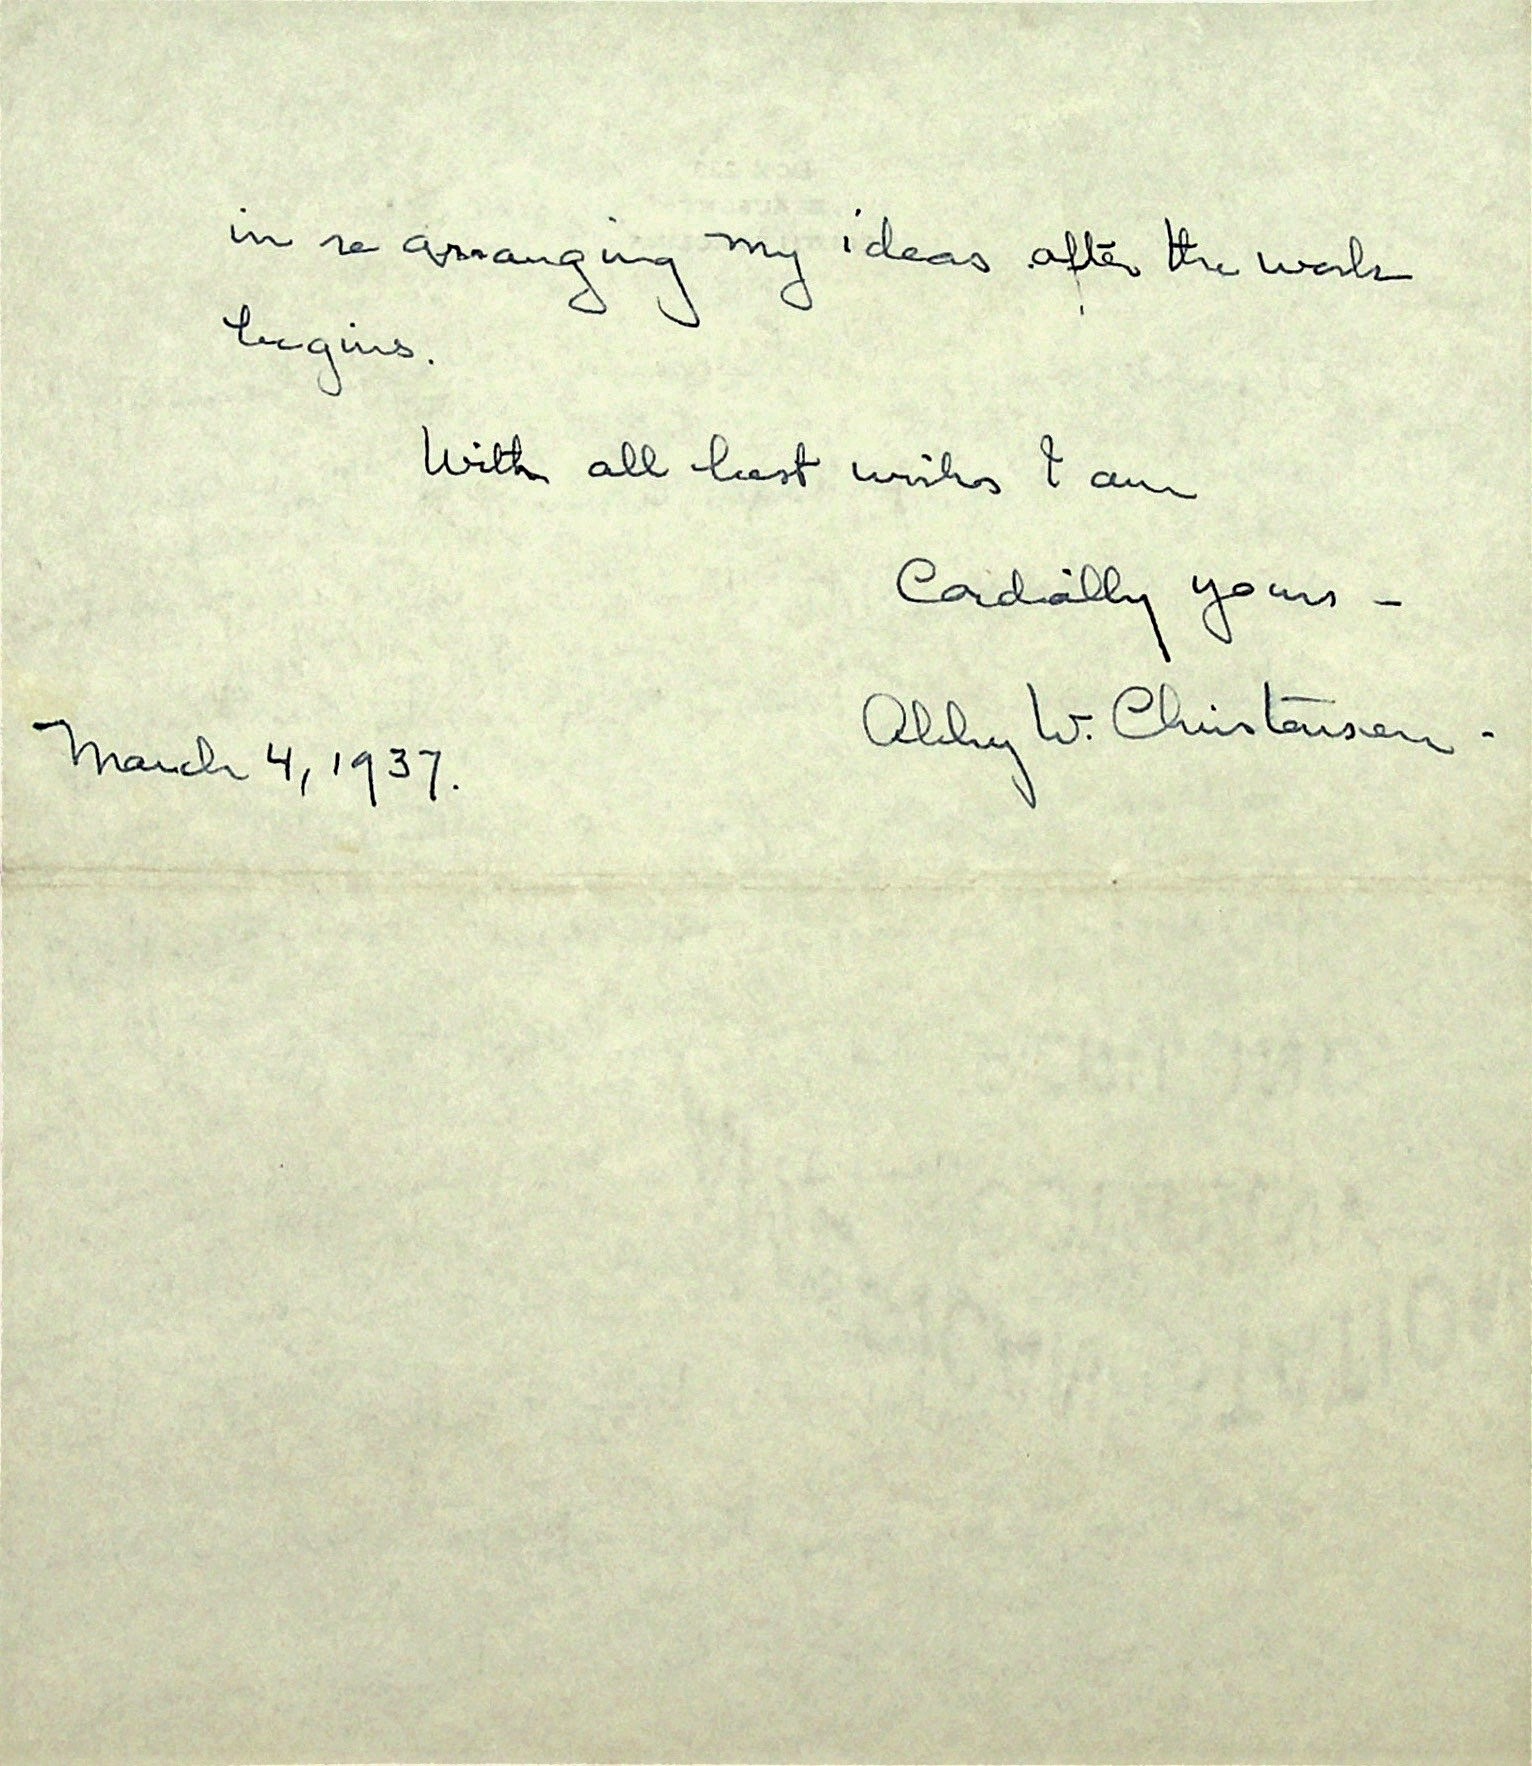 in re arranging my ideas after the work
begins.
With all best wishes I am
Cordially yours -
Abby W. Christensen -
March 4, 1937.